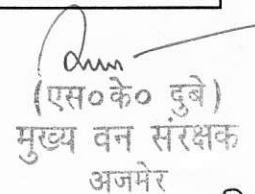 (एस०के० दुबे)
मुख्य वन संरक्षक
अजमेर